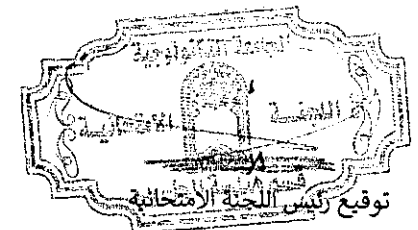 الجامعة التكنولوجية
اللجنة الامتحانية
توقيع رئيس اللجنة الامتحانية